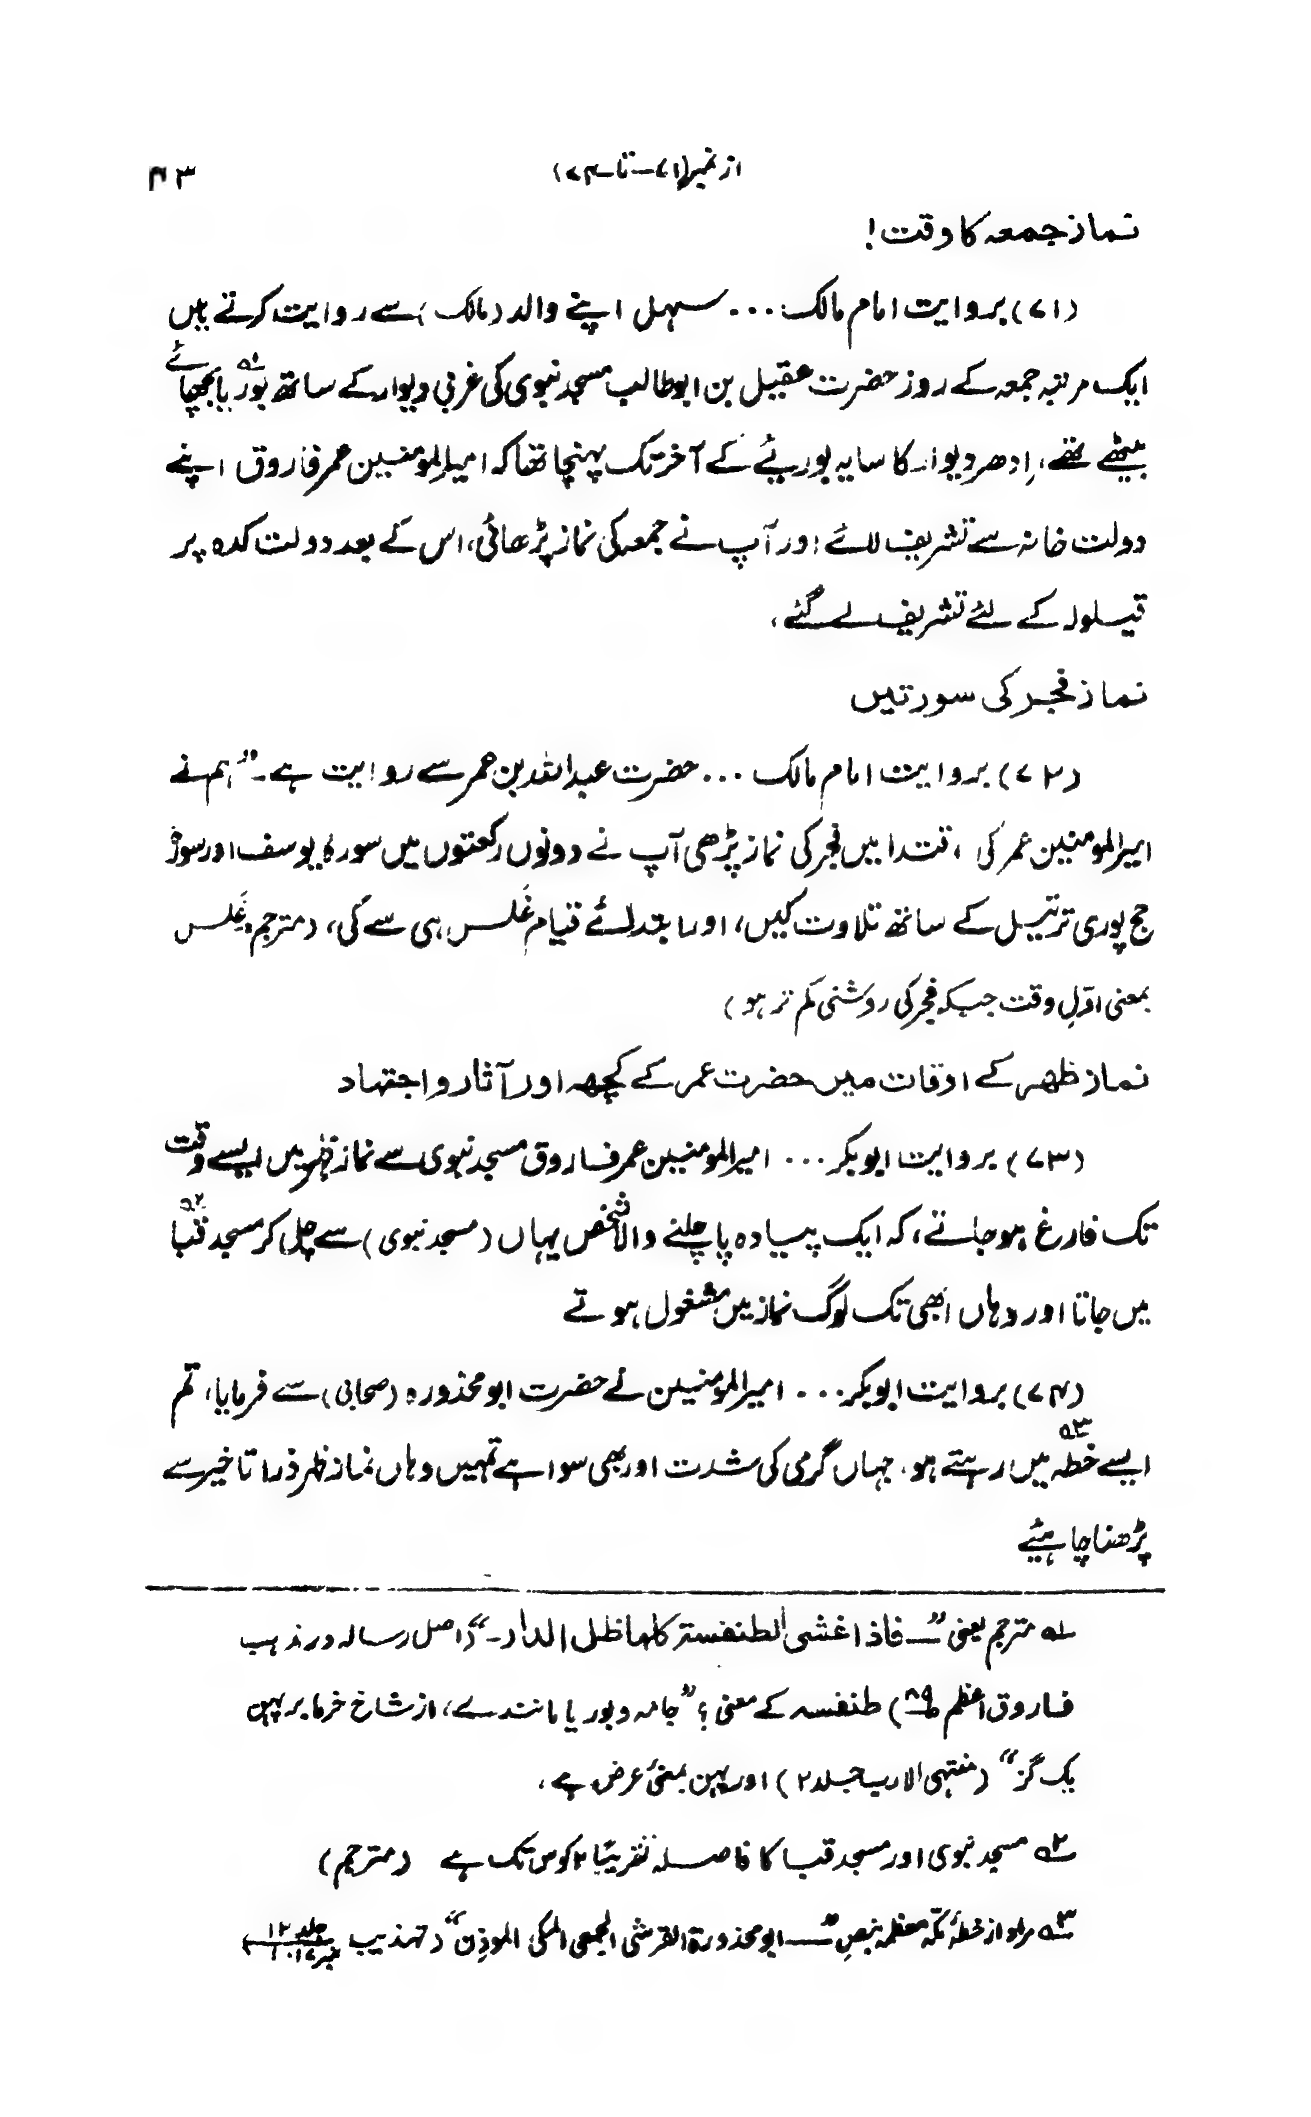 از نمبر (۷۱ — تا — ۷۴)
۴۳
نماز جمعہ کا وقت!
(۷۱) بروایت امام مالک ... سہل اپنے والد (مالک) سے روایت کرتے ہیں
ایک مرتبہ جمعہ کے روز حضرت عقیل بن ابوطالب مسجد نبوی کی غربی دیوار کے ساتھ بوریا۱ بچھائے
بیٹھے تھے، اِدھر دیوار کا سایہ بوریئے کے آخر تک پہنچا تھا کہ امیرالمومنین عمر فاروق اپنے
دولت خانہ سے تشریف لائے اور آپ نے جمعہ کی نماز پڑھائی، اس کے بعد دولت کدہ پر
قیلولہ کے لئے تشریف لے گئے،
نماز فجر کی سورتیں
(۷۲) بروایت امام مالک ... حضرت عبداللہ بن عمر سے روایت ہے۔ ”ہم نے
امیرالمومنین عمر کی اقتدا میں فجر کی نماز پڑھی آپ نے دونوں رکعتوں میں سورۂ یوسف اور سورۂ
حج پوری ترتیل کے ساتھ تلاوت کیں، اور ابتدائے قیام غَلَس ہی سے کی، (مترجم، غَلَس
بمعنی اوّلِ وقت جبکہ فجر کی روشنی کم تر ہو)
نماز ظہر کے اوقات میں حضرت عمر کے کچھ اور آثار و اجتہاد
(۷۳) بروایت ابوبکر ... امیرالمومنین عمر فاروق مسجد نبوی سے نماز ظہر میں ایسے وقت
تک فارغ ہو جاتے، کہ ایک پیادہ پا چلنے والا شخص یہاں (مسجد نبوی) سے چل کر مسجد قبا۲
میں جاتا اور وہاں ابھی تک لوگ نماز میں مشغول ہوتے
(۷۴) بروایت ابوبکر ... امیرالمومنین نے حضرت ابو محذورہ (صحابی) سے فرمایا، تم
ایسے خطہ۳ میں رہتے ہو، جہاں گرمی کی شدت اور بھی سوا ہے تمہیں وہاں نماز ظہر ذرا تاخیر سے
پڑھنا چاہیئے
۱ مترجم یعنی ”— فاذا غشی الطنفستہ کلھا ظل الدار۔“ (اصل رسالہ در مذہب
فاروق اعظم ص ۸۹) طنفسہ کے معنی؟ ”جامہ و بوریا مانندے، از شاخ خرما بر پہن
یک گز“ (منتہی الارب جلد ۲) اور پہن بمعنیٔ عرض ہے،
۲ مسجد نبوی اور مسجد قبا کا فاصلہ تقریبًا ۲ کوس تک ہے (مترجم)
۳ مراد از خطۂ مکّہ معظمہ بنصِ ”— ابو محذورۃ القرشی الجمحی المکی الموذِن“ (تہذیب جلد ۱۲